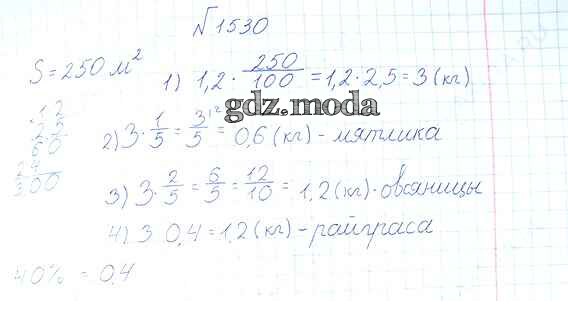 №1530
S = 250 м²
1) 1,2 · 250/100 = 1,2 · 2,5 = 3 (кг)
gdz.moda
12
25
60
24
3,00
2) 3 · 1/5 = 3/5 = 0,6 (кг) - мятлика
3) 3 · 2/5 = 6/5 = 12/10 = 1,2 (кг) - овсяницы
4) 3 0,4 = 1,2 (кг) - райграса
40% = 0,4